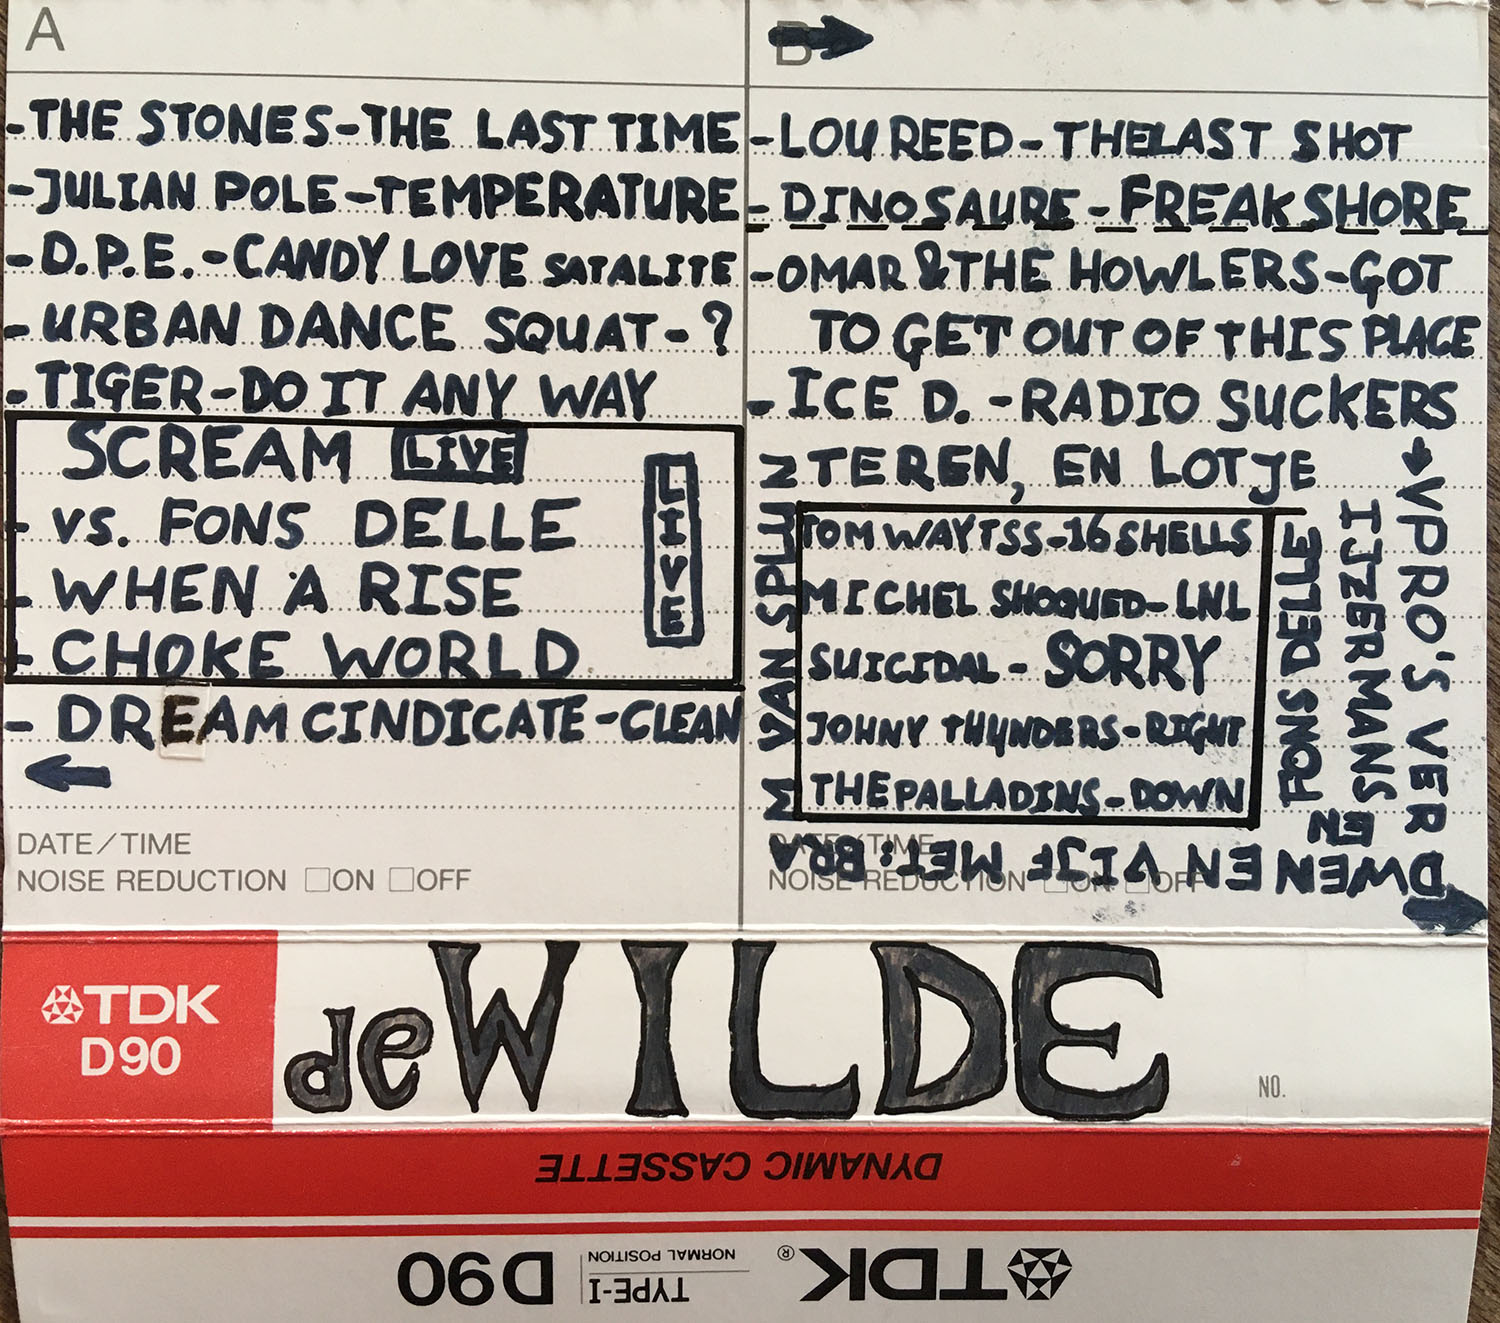 A
-THE STONES-THE LAST TIME
-JULIAN POLE-TEMPERATURE
-D.P.E.-CANDY LOVE SATALITE
-URBAN DANCE SQUAT-?
-TIGER-DO IT ANY WAY
SCREAM LIVE
- VS. FONS DELLE
- WHEN A RISE
- CHOKE WORLD
LIVE
- DREAM CINDICATE-CLEAN
DATE/TIME
NOISE REDUCTION □ON □OFF
B
-LOU REED-THE LAST SHOT
-DINOSAURE-FREAKSHORE
-OMAR & THE HOWLERS-GOT
TO GET OUT OF THIS PLACE
-ICE D.-RADIO SUCKERS
→VPRO'S VER
DWENEN VIJF MET: BRA
M VAN SPLUN
TEREN, EN LOTJE
IJZERMANS
EN
FONS DELLEN
TOM WAYTSS-16 SHELLS
MICHEL SHOQUED-LNL
SUICIDAL-SORRY
JOHNY THUNDERS-RIGHT
THE PALLADINS-DOWN
DATE/TIME
NOISE REDUCTION □ON □OFF
TDK
D90
deWILDE
NO.
DYNAMIC CASSETTE
TDK®
TYPE-I
NORMAL POSITION
D90